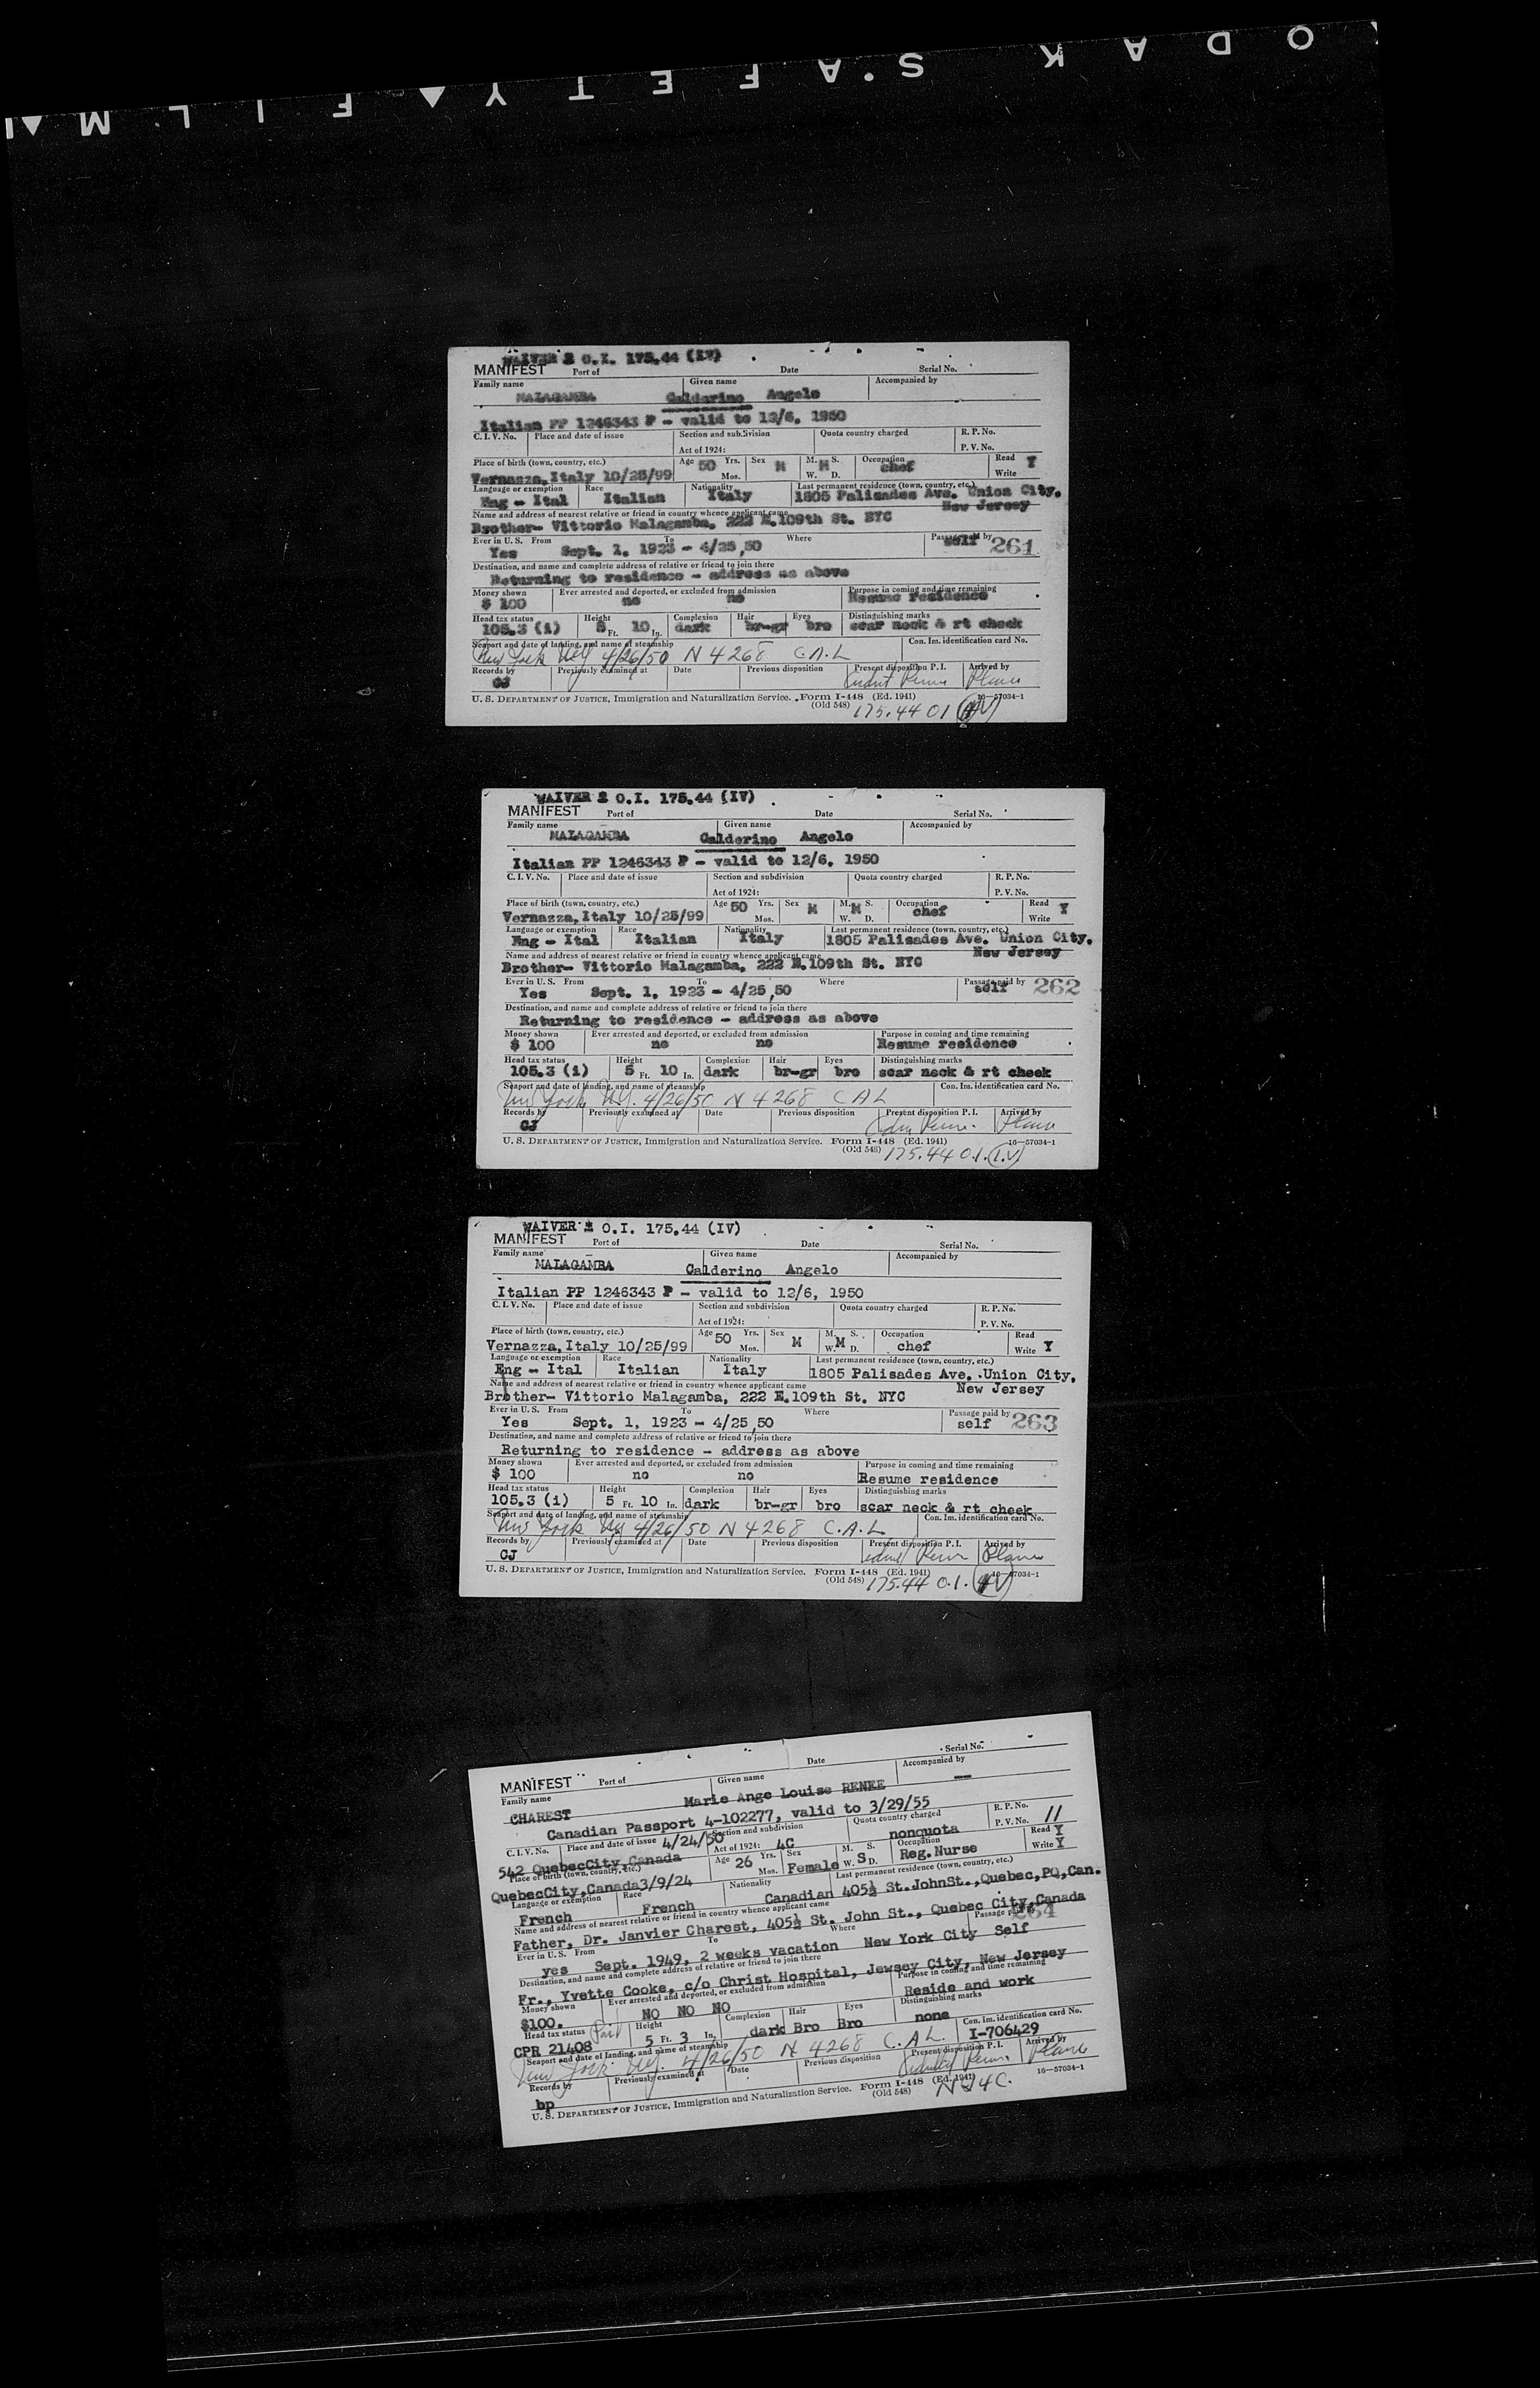 ODAK S·AFETY▲FILM▲
WAIVER 2 O.I. 175.44 (IV)
MANIFEST Port of Date Serial No.
Family name Given name Accompanied by
MALAGAMBA Calderino Angelo
Italian PP 1246343 P - valid to 12/6, 1950
C. I. V. No. Place and date of issue Section and subdivision Quota country charged R. P. No.
Act of 1924: P. V. No.
Place of birth (town, country, etc.) Age 50 Yrs. Sex M M. M S. Occupation Read Y
Vernazza, Italy 10/25/99 Mos. W. D. chef Write
Language or exemption Race Nationality Last permanent residence (town, country, etc.)
Eng - Ital Italian Italy 1805 Palisades Ave. Union City,
Name and address of nearest relative or friend in country whence applicant came New Jersey
Brother- Vittorio Malagamba, 222 E.109th St. NYC
Ever in U. S. From To Where Passage paid by
Yes Sept. 1, 1923 - 4/25,50 self 261
Destination, and name and complete address of relative or friend to join there
Returning to residence - address as above
Money shown Ever arrested and deported, or excluded from admission Purpose in coming and time remaining
$ 100 no no Resume residence
Head tax status Height Complexion Hair Eyes Distinguishing marks
105.3 (i) 5 Ft. 10 In. dark br-gr bro scar neck & rt cheek
Seaport and date of landing, and name of steamship Con. Im. identification card No.
New York NY 4/26/50 N 4268 C.A.L
Records by Previously examined at Date Previous disposition Present disposition P. I. Arrived by
CJ Plane
U. S. DEPARTMENT OF JUSTICE, Immigration and Naturalization Service. Form I-448 (Ed. 1941) 16—57034-1
(Old 548) 175.44 O1 (IV)
WAIVER 2 O.I. 175.44 (IV)
MANIFEST Port of Date Serial No.
Family name Given name Accompanied by
MALAGAMBA Calderino Angelo
Italian PP 1246343 P - valid to 12/6, 1950
C. I. V. No. Place and date of issue Section and subdivision Quota country charged R. P. No.
Act of 1924: P. V. No.
Place of birth (town, country, etc.) Age 50 Yrs. Sex M M. M S. Occupation Read Y
Vernazza, Italy 10/25/99 Mos. W. D. chef Write
Language or exemption Race Nationality Last permanent residence (town, country, etc.)
Eng - Ital Italian Italy 1805 Palisades Ave. Union City,
Name and address of nearest relative or friend in country whence applicant came New Jersey
Brother- Vittorio Malagamba, 222 E.109th St. NYC
Ever in U. S. From To Where Passage paid by
Yes Sept. 1, 1923 - 4/25,50 self 262
Destination, and name and complete address of relative or friend to join there
Returning to residence - address as above
Money shown Ever arrested and deported, or excluded from admission Purpose in coming and time remaining
$ 100 no no Resume residence
Head tax status Height Complexion Hair Eyes Distinguishing marks
105.3 (i) 5 Ft. 10 In. dark br-gr bro scar neck & rt cheek
Seaport and date of landing, and name of steamship Con. Im. identification card No.
New York NY. 4/26/50 N 4268 C A L
Records by Previously examined at Date Previous disposition Present disposition P. I. Arrived by
CJ Plane
U. S. DEPARTMENT OF JUSTICE, Immigration and Naturalization Service. Form I-448 (Ed. 1941) 16—57034-1
(Old 548) 175.44 O.I. (I.V)
WAIVER 2 O.I. 175.44 (IV)
MANIFEST Port of Date Serial No.
Family name Given name Accompanied by
MALAGAMBA Calderino Angelo
Italian PP 1246343 P - valid to 12/6, 1950
C. I. V. No. Place and date of issue Section and subdivision Quota country charged R. P. No.
Act of 1924: P. V. No.
Place of birth (town, country, etc.) Age 50 Yrs. Sex M M. M S. Occupation Read
Vernazza, Italy 10/25/99 Mos. W. D. chef Write Y
Language or exemption Race Nationality Last permanent residence (town, country, etc.)
Eng - Ital Italian Italy 1805 Palisades Ave. Union City,
Name and address of nearest relative or friend in country whence applicant came New Jersey
Brother- Vittorio Malagamba, 222 E.109th St. NYC
Ever in U. S. From To Where Passage paid by
Yes Sept. 1, 1923 - 4/25,50 self 263
Destination, and name and complete address of relative or friend to join there
Returning to residence - address as above
Money shown Ever arrested and deported, or excluded from admission Purpose in coming and time remaining
$ 100 no no Resume residence
Head tax status Height Complexion Hair Eyes Distinguishing marks
105.3 (i) 5 Ft. 10 In. dark br-gr bro scar neck & rt cheek
Seaport and date of landing, and name of steamship Con. Im. identification card No.
New York NY 4/26/50 N 4268 C.A.L
Records by Previously examined at Date Previous disposition Present disposition P. I. Arrived by
CJ Plane
U. S. DEPARTMENT OF JUSTICE, Immigration and Naturalization Service. Form I-448 (Ed. 1941) 16—57034-1
(Old 548) 175.44 O.I. (IV)
MANIFEST Port of Date Serial No.
Family name Given name Accompanied by
CHAREST Marie Ange Louise RENEE --
Canadian Passport 4-102277, valid to 3/29/55
C. I. V. No. Place and date of issue 4/24/50 Section and subdivision Quota country charged R. P. No.
542 QuebecCity, Canada Act of 1924: 4C nonquota P. V. No. 11
Place of birth (town, country, etc.) Age 26 Yrs. Sex M. S. Occupation Read Y
QuebecCity, Canada3/9/24 Mos. Female W. S D. Reg. Nurse Write Y
Language or exemption Race Nationality Last permanent residence (town, country, etc.)
French French Canadian 405½ St.JohnSt.,Quebec,PQ,Can.
Name and address of nearest relative or friend in country whence applicant came
Father, Dr. Janvier Charest, 405½ St. John St., Quebec City,Canada
Ever in U. S. From To Where Passage paid by 264
yes Sept. 1949, 2 weeks vacation New York City Self
Destination, and name and complete address of relative or friend to join there
Fr., Yvette Cooke, c/o Christ Hospital, Jewsey City, New Jersey
Money shown Ever arrested and deported, or excluded from admission Purpose in coming and time remaining
$100. NO NO NO Reside and work
Head tax status Paid Height Complexion Hair Eyes Distinguishing marks
CPR 21408 5 Ft. 3 In. dark Bro Bro none
Seaport and date of landing, and name of steamship Con. Im. identification card No.
New York. NY. 4/26/50 N 4268 C.A.L. I-706429
Records by Previously examined at Date Previous disposition Present disposition P. I. Arrived by
bp Plane
U. S. DEPARTMENT OF JUSTICE, Immigration and Naturalization Service. Form I-448 (Ed. 1941) 16—57034-1
(Old 548) NQ4C.